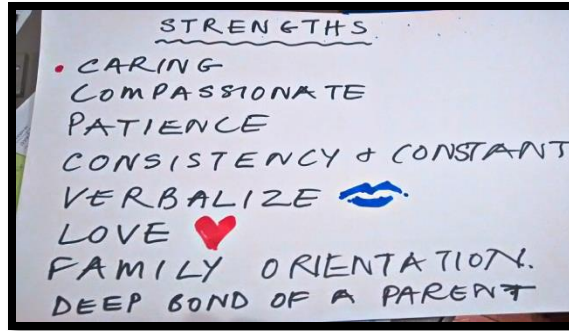 STRENGTHS
• CARING
COMPASSIONATE
PATIENCE
CONSISTENCY & CONSTANT
VERBALIZE
LOVE
FAMILY ORIENTATION.
DEEP BOND OF A PARENT